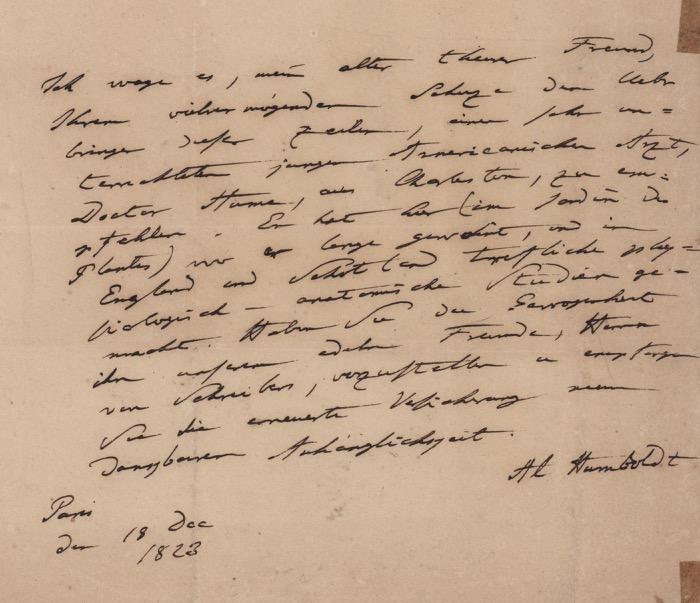 Ich wage es, mein alter theurer Freund,
Ihrem vielvermögenden Schuze dem Uebr
bringer dieser Zeilen, einen sehr un=
terrichteten jungen Americanischen Arzt,
Doctor Hume, aus Charleston, zu em=
pfehlen. Er hat hier (im Jardin des
Plantes) wo er lange gewohnt, und in
England und Schotland trefliche phy=
siologisch-anatomische Studien ge-
macht. Haben Sie die Gewogenheit
ihn unserem edeln Freunde, Herrn
von Schreibers, vorzustellen u empfangen
Sie die erneuerte Versicherung meiner
dankbaren Anhänglichkeit.
Al Humboldt
Paris
den 18 Dec
1823